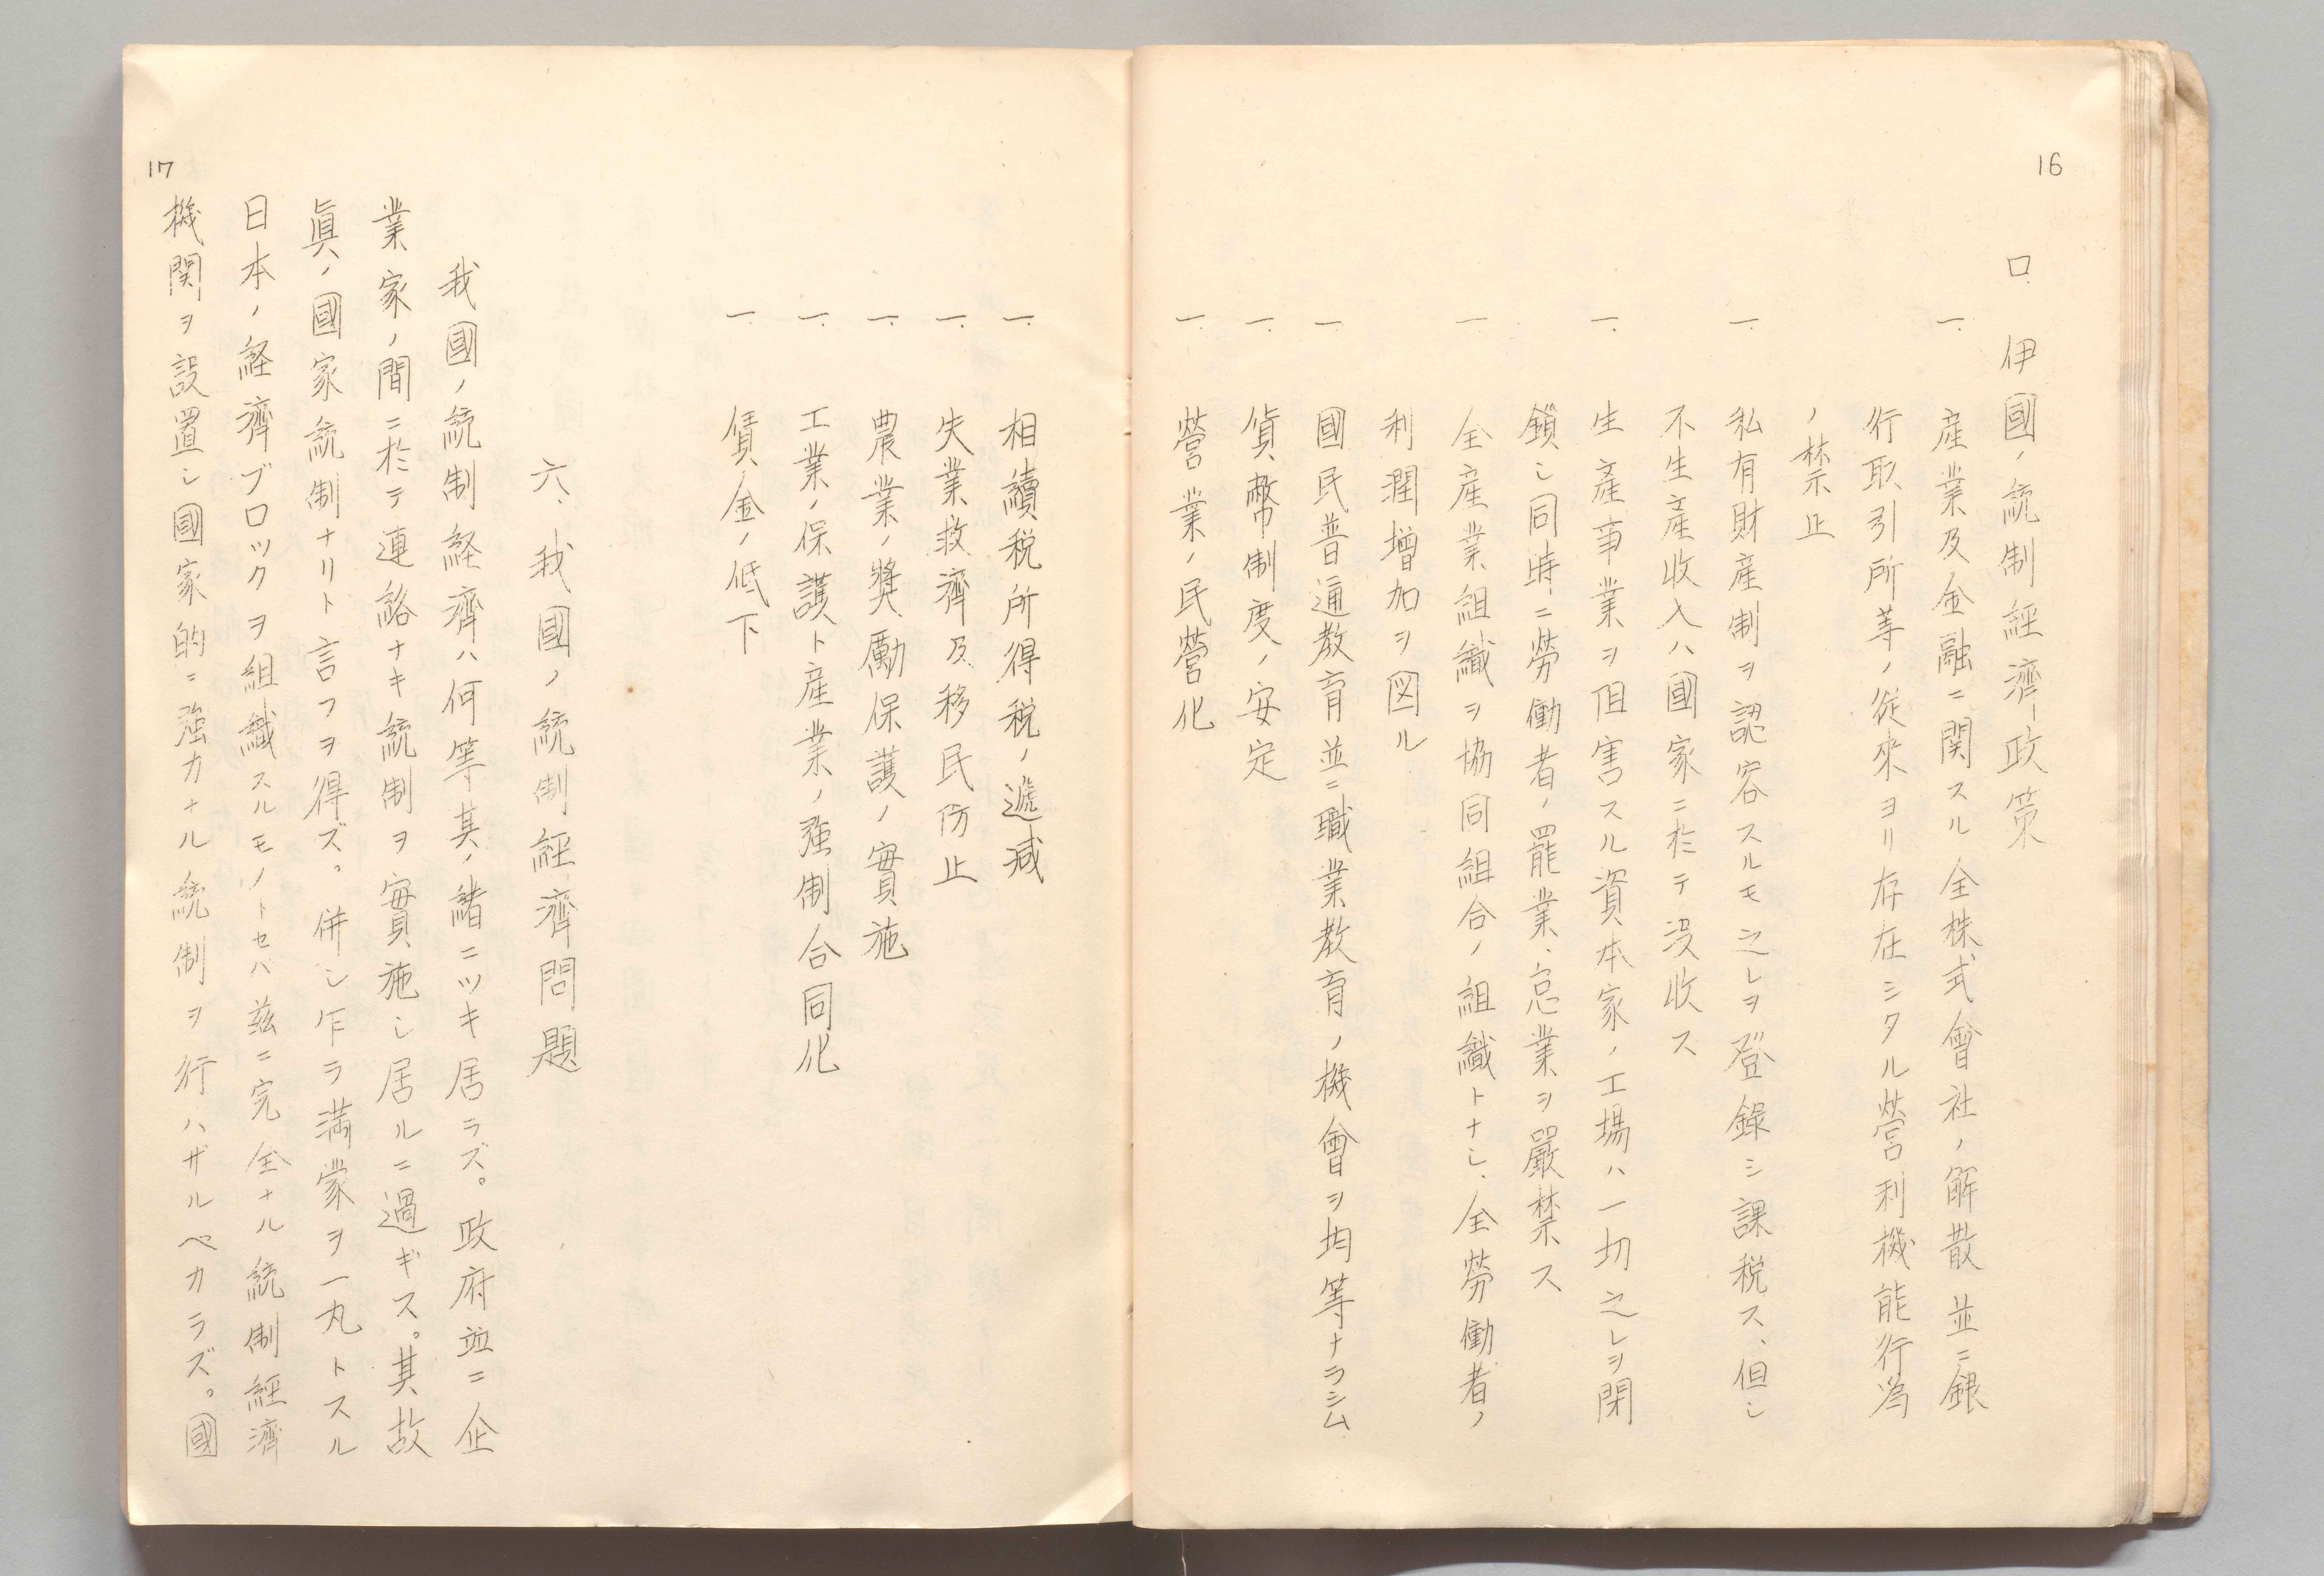 16
ロ. 伊國ノ統制経濟政策
一. 産業及金融ニ関スル全株式會社ノ解散並ニ銀
行取引所等ノ従來ヨリ存在シタル営利機能行為
ノ禁止
一. 私有財産制ヲ認容スルモ之レヲ登録シ課税ス、但シ
不生産收入ハ國家ニ於テ没收ス
一. 生産事業ヲ阻害スル資本家ノ工場ハ一切之レヲ閉
鎖シ同時ニ勞働者ノ罷業、怠業ヲ嚴禁ス
一. 全産業組織ヲ協同組合ノ組織トナシ、全勞働者ノ
利潤増加ヲ図ル
一. 國民普通教育並ニ職業教育ノ機會ヲ均等ナラシム
一. 貨幣制度ノ安定
一. 營業ノ民營化
一. 相續税所得税ノ遞減
一. 失業救濟及移民防止
一. 農業ノ獎勵保護ノ實施
一. 工業ノ保護ト産業ノ強制合同化
一. 賃金ノ低下
六、我國ノ統制経濟問題
我國ノ統制経濟ハ何等其ノ緒ニツキ居ラズ。政府並ニ企
業家ノ間ニ於テ連絡ナキ統制ヲ實施シ居ルニ過ギス。其故
眞ノ國家統制ナリト言フヲ得ズ。併シ乍ラ満蒙ヲ一丸トスル
日本ノ経濟ブロックヲ組織スルモノトセバ茲ニ完全ナル統制経濟
機関ヲ設置シ國家的ニ強力ナル統制ヲ行ハザルベカラズ。國
17